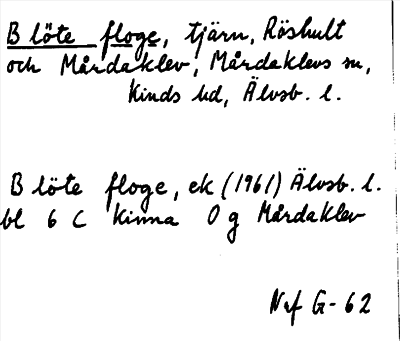 Blöte floge, tjärn, Röshult
och Mårdaklev, Mårdaklevs sn,
Kinds hd, Älvsb. l.
Blöte floge, ek (1961) Älvsb. l.
bl 6 C Kinna 0 g Mårdaklev
Naf G-62